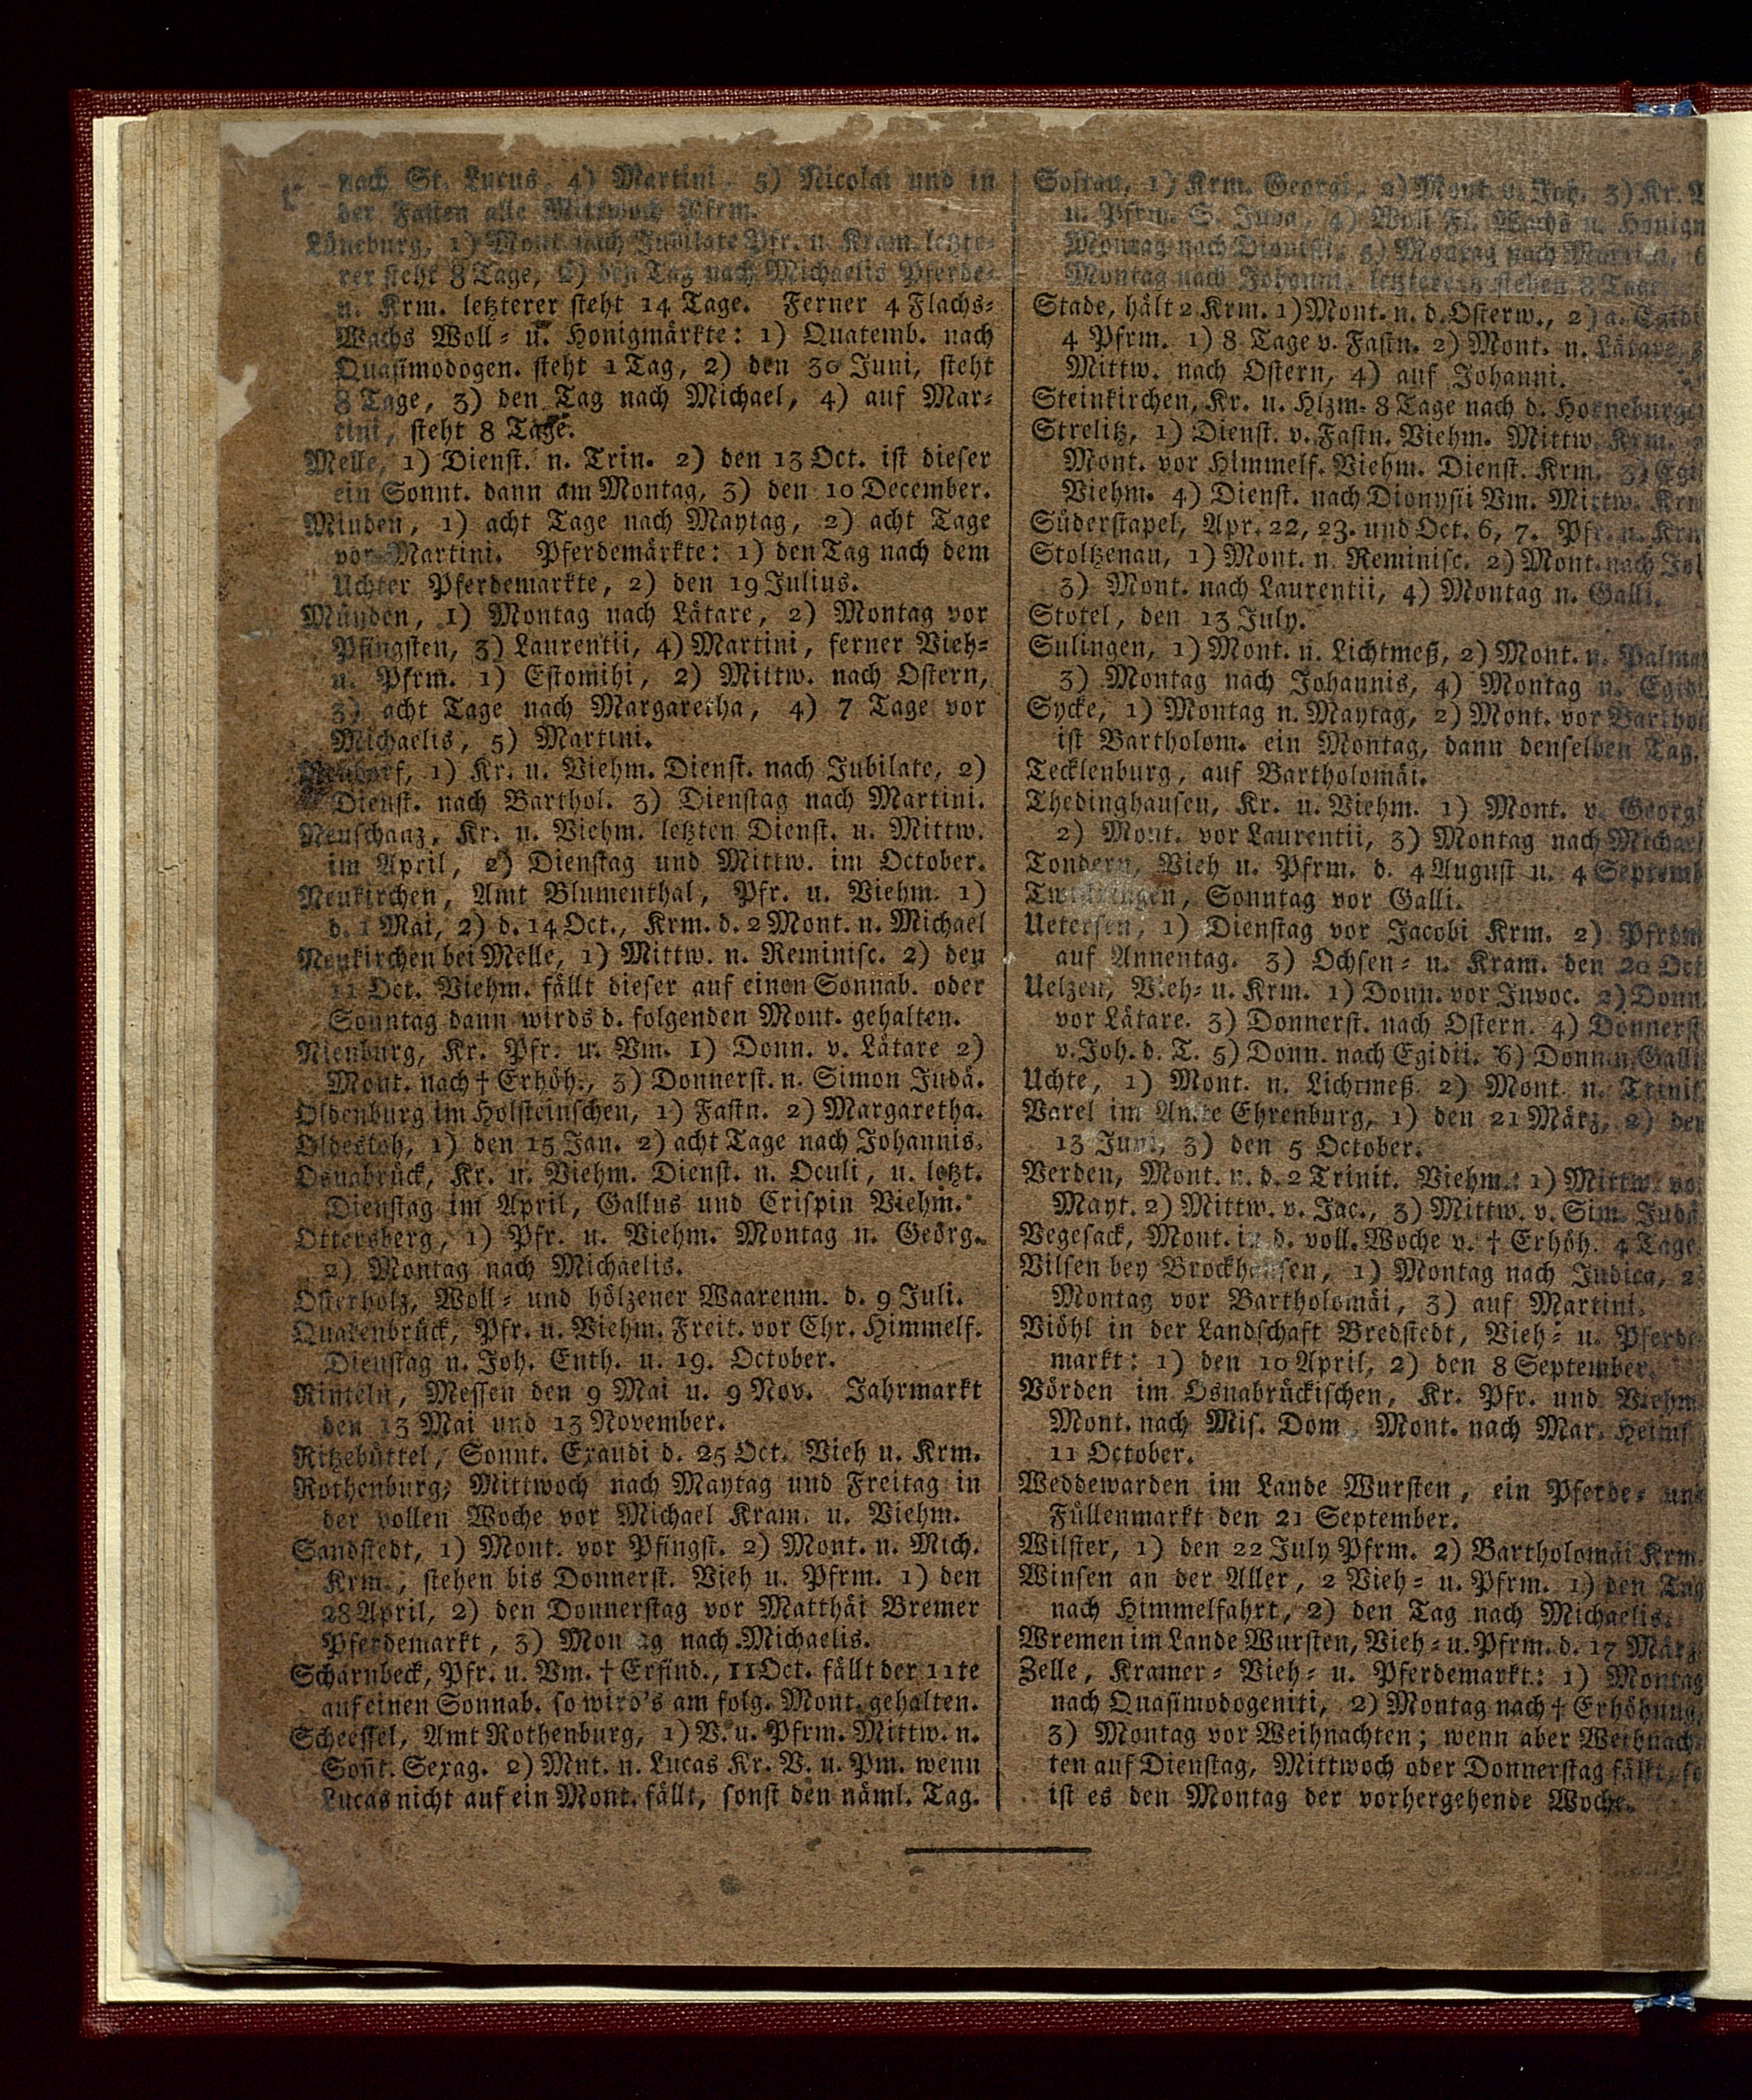 nach St. Lucus, 4) Martini, 5) Nicolai und in
der Fasten alle Mittwoch Pfrm.
Lüneburg, 1) Mont. nach Jubilate Pfr. u. Kram. letzte-
rer steht 8 Tage, 2) den Tag nach Michaelis Pferde-
u. Krm. letzterer steht 14 Tage. Ferner 4 Flachs-
Wachs Woll- u. Honigmärkte: 1) Quatemb. nach
Quasimodogen. steht 1 Tag, 2) den 30 Juni, steht
8 Tage, 3) den Tag nach Michael, 4) auf Mar-
tini, steht 8 Tage.
Melle, 1) Dienst. n. Trin. 2) den 13 Oct. ist dieser
ein Sonnt. dann am Montag, 3) den 10 December.
Minden, 1) acht Tage nach Maytag, 2) acht Tage
vor Martini. Pferdemärkte: 1) den Tag nach dem
Uchter Pferdemarkte, 2) den 19 Julius.
Münden, 1) Montag nach Lätare, 2) Montag vor
Pfingsten, 3) Laurentii, 4) Martini, ferner Vieh-
u. Pfrm. 1) Estomihi, 2) Mittw. nach Ostern,
3) acht Tage nach Margaretha, 4) 7 Tage vor
Michaelis, 5) Martini.
1) Kr. u. Viehm. Dienst. nach Jubilate, 2)
Dienst. nach Barthol. 3) Dienstag nach Martini.
Neuschanz, Kr. u. Viehm. letzten Dienst. u. Mittw.
im April, 2) Dienstag und Mittw. im October.
Neukirchen, Amt Blumenthal, Pfr. u. Viehm. 1)
d. 1 Mai, 2) d. 14 Oct., Krm. d. 2 Mont. n. Michael
Neukirchen bei Melle, 1) Mittw. n. Reminisc. 2) den
11 Oct. Viehm. fällt dieser auf einen Sonnab. oder
Sonntag dann wirds d. folgenden Mont. gehalten.
Nienburg, Kr. Pfr. u. Vm. 1) Donn. v. Lätare 2)
Mont. nach † Erhöh., 3) Donnerst. n. Simon Judä.
Oldenburg im Holsteinschen, 1) Fastn. 2) Margaretha.
Oldesloh, 1) den 15 Jan. 2) acht Tage nach Johannis.
Osnabrück, Kr. u. Viehm. Dienst. n. Oculi, u. letzt.
Dienstag im April, Gallus und Crispin Viehm.
Ottersberg, 1) Pfr. u. Viehm. Montag n. Georg.
2) Montag nach Michaelis.
Osterholz, Woll- und hölzener Waarenm. d. 9 Juli.
Quakenbrück, Pfr. u. Viehm. Freit. vor Chr. Himmelf.
Dienstag n. Joh. Enth. u. 19. October.
Rinteln, Messen den 9 Mai u. 9 Nov. Jahrmarkt
den 13 Mai und 13 November.
Ritzebüttel, Sonnt. Exaudi d. 25 Oct. Vieh u. Krm.
Rothenburg, Mittwoch nach Maytag und Freitag in
der vollen Woche vor Michael Kram. u. Viehm.
Sandstedt, 1) Mont. vor Pfingst. 2) Mont. n. Mich.
Krm., stehen bis Donnerst. Vieh u. Pfrm. 1) den
28 April, 2) den Donnerstag vor Matthäi Bremer
Pferdemarkt, 3) Montag nach Michaelis.
Scharnbeck, Pfr. u. Vm. † Erfind., 11 Oct. fällt der 11te
auf einen Sonnab. so wird's am folg. Mont. gehalten.
Scheessel, Amt Rothenburg, 1) V. u. Pfrm. Mittw. n.
Sont. Sexag. 2) Mnt. n. Lucas Kr. V. u. Pm. wenn
Lucas nicht auf ein Mont. fällt, sonst den näml. Tag.
1) Krm. Georgi, 2) Mont. v. Joh. 3) Kr.
u. Pfrm. S. Juda, 4) Woll Fl. Wachs u. Honigm
Montag nach Dionisii, 5) Montag nach
Montag nach Johanni, letzterern stehen 8 Tage
Stade, hält 2 Krm. 1) Mont. n. d. Osterw., 2) a. Egidi
4 Pfrm. 1) 8 Tage v. Fastn. 2) Mont. n. Lätare,
Mittw. nach Ostern, 4) auf Johanni.
Steinkirchen, Kr. u. Hlzm. 8 Tage nach d. Horneburger
Strelitz, 1) Dienst. v. Fastn. Viehm. Mittw. Krm.
Mont. vor Himmelf. Viehm. Dienst. Krm. 3) Egi
Viehm. 4) Dienst. nach Dionysii Vm. Mittw. Kr
Süderstapel, Apr. 22, 23. und Oct. 6, 7. Pfr. u. Kr
Stoltzenau, 1) Mont. n. Reminisc. 2) Mont. nach Jo
3) Mont. nach Laurentii, 4) Montag n. Galli.
Stotel, den 13 July.
Sulingen, 1) Mont. n. Lichtmeß, 2) Mont. n. Palma
3) Montag nach Johannis, 4) Montag n. Egidi
Sycke, 1) Montag n. Maytag, 2) Mont. vor Barthol
ist Bartholom. ein Montag, dann denselben Tag.
Tecklenburg, auf Bartholomäi.
Thedinghausen, Kr. u. Viehm. 1) Mont. v. Georgi
2) Mont. vor Laurentii, 3) Montag nach Michae
Tondern, Vieh u. Pfrm. d. 4 August u. 4 Septemb
Twistringen, Sonntag vor Galli.
Uetersen, 1) Dienstag vor Jacobi Krm. 2) Pfrdm
auf Annentag. 3) Ochsen- u. Kram. den 20 Oct
Uelzen, Vieh- u. Krm. 1) Donn. vor Invoc. 2) Donn.
vor Lätare. 3) Donnerst. nach Ostern. 4) Donnerst
v. Joh. d. T. 5) Donn. nach Egidii. 6) Donn. n. Galli
Uchte, 1) Mont. n. Lichtmeß 2) Mont. n. Trinit
Varel im Amte Ehrenburg, 1) den 21 März, 2) den
13 Juni, 3) den 5 October.
Verden, Mont. n. d. 2 Trinit. Viehm.: 1) Mittw. vo
Mayt. 2) Mittw. v. Jac., 3) Mittw. v. Sim. Judä
Vegesack, Mont. in d. voll. Woche v. † Erhöh. 4 Tage
Vilsen bey Brockhausen, 1) Montag nach Judica, 2
Montag vor Bartholomäi, 3) auf Martini.
Viöhl in der Landschaft Bredstedt, Vieh- u. Pferde
markt: 1) den 10 April, 2) den 8 September.
Vörden im Osnabrückischen, Kr. Pfr. und Viehm
Mont. nach Mis. Dom. Mont. nach Mar. Heims
11 October.
Weddewarden im Lande Wursten, ein Pferde- und
Füllenmarkt den 21 September.
Wilster, 1) den 22 July Pfrm. 2) Bartholomäi Krm.
Winsen an der Aller, 2 Vieh- u. Pfrm. 1) den Tag
nach Himmelfahrt, 2) den Tag nach Michaelis.
Wremen im Lande Wursten, Vieh- u. Pfrm. d. 17 März
Zelle, Kramer- Vieh- u. Pferdemarkt.: 1) Montag
nach Quasimodogeniti, 2) Montag nach † Erhöhung,
3) Montag vor Weihnachten; wenn aber Weihnach-
ten auf Dienstag, Mittwoch oder Donnerstag fällt, so
ist es den Montag der vorhergehende Woche.